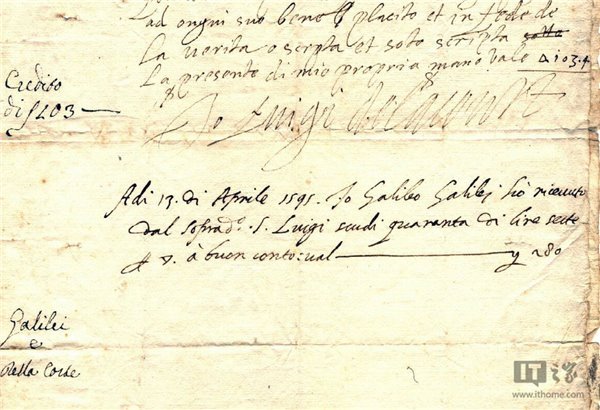 ad ongni suo beneplacito et in fede de
la verita o scrpta et soto scripta sotto
La presente di mio propria mano vale 1034
Credito
di 203
Io Luigi
Adi 13. di Aprile 1595. Io Galileo Galilej hò riceuuto
dal soprad.º S. Luigi scudi quaranta di lire sette
à buon conto: ual 280
Galilei
e
Dalla Corte
IT之家
www.ithome.com